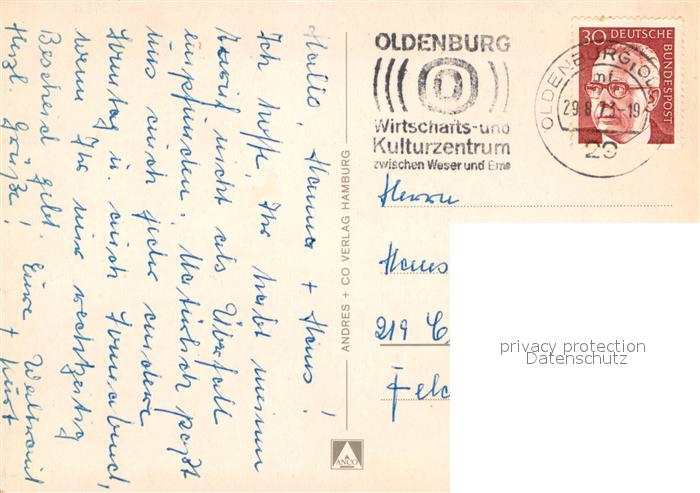 Hallo, Hanna + Hans!
Ich hoffe, Ihr habt meinen
Anruf nicht als Überfall
empfunden. Natürlich paßt
uns auch jeder andere
Sonntag u. auch Sonnabend,
wenn Ihr mir rechtzeitig
Bescheid gebt. Eure Waltraut
Herzl. Grüße! + Kurt
ANDRES + CO VERLAG HAMBURG
ANCO
OLDENBURG
Wirtschafts-und
Kulturzentrum
zwischen Weser und Ems
OLDENBURG, OL
mf
29.8.73-19
29
30 DEUTSCHE
BUNDESPOST
Herrn
Hans
219 C
privacy protection
Datenschutz